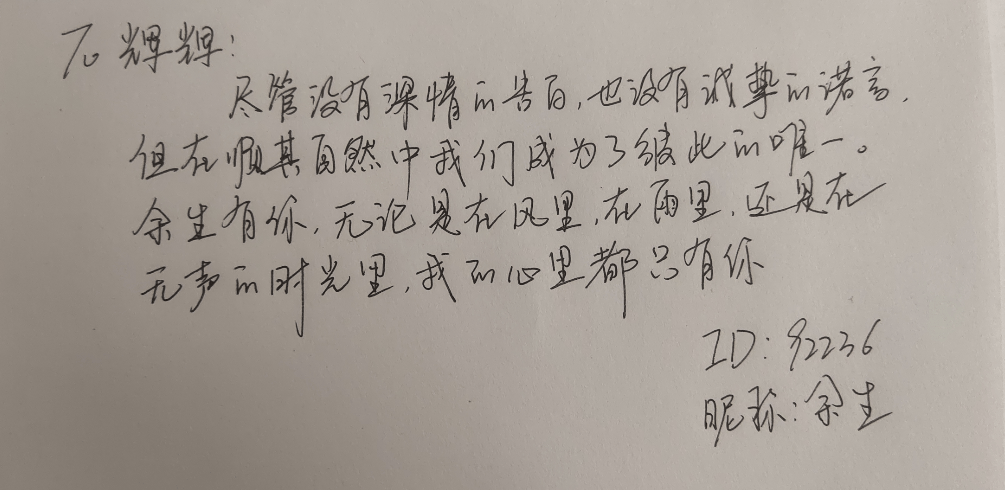 To 辉辉:
尽管没有深情的告白,也没有诚挚的诺言,
但在顺其自然中我们成为了彼此的唯一。
余生有你,无论是在风里,在雨里,还是在
无声的时光里,我的心里都只有你
ID: 92236
昵称:余生